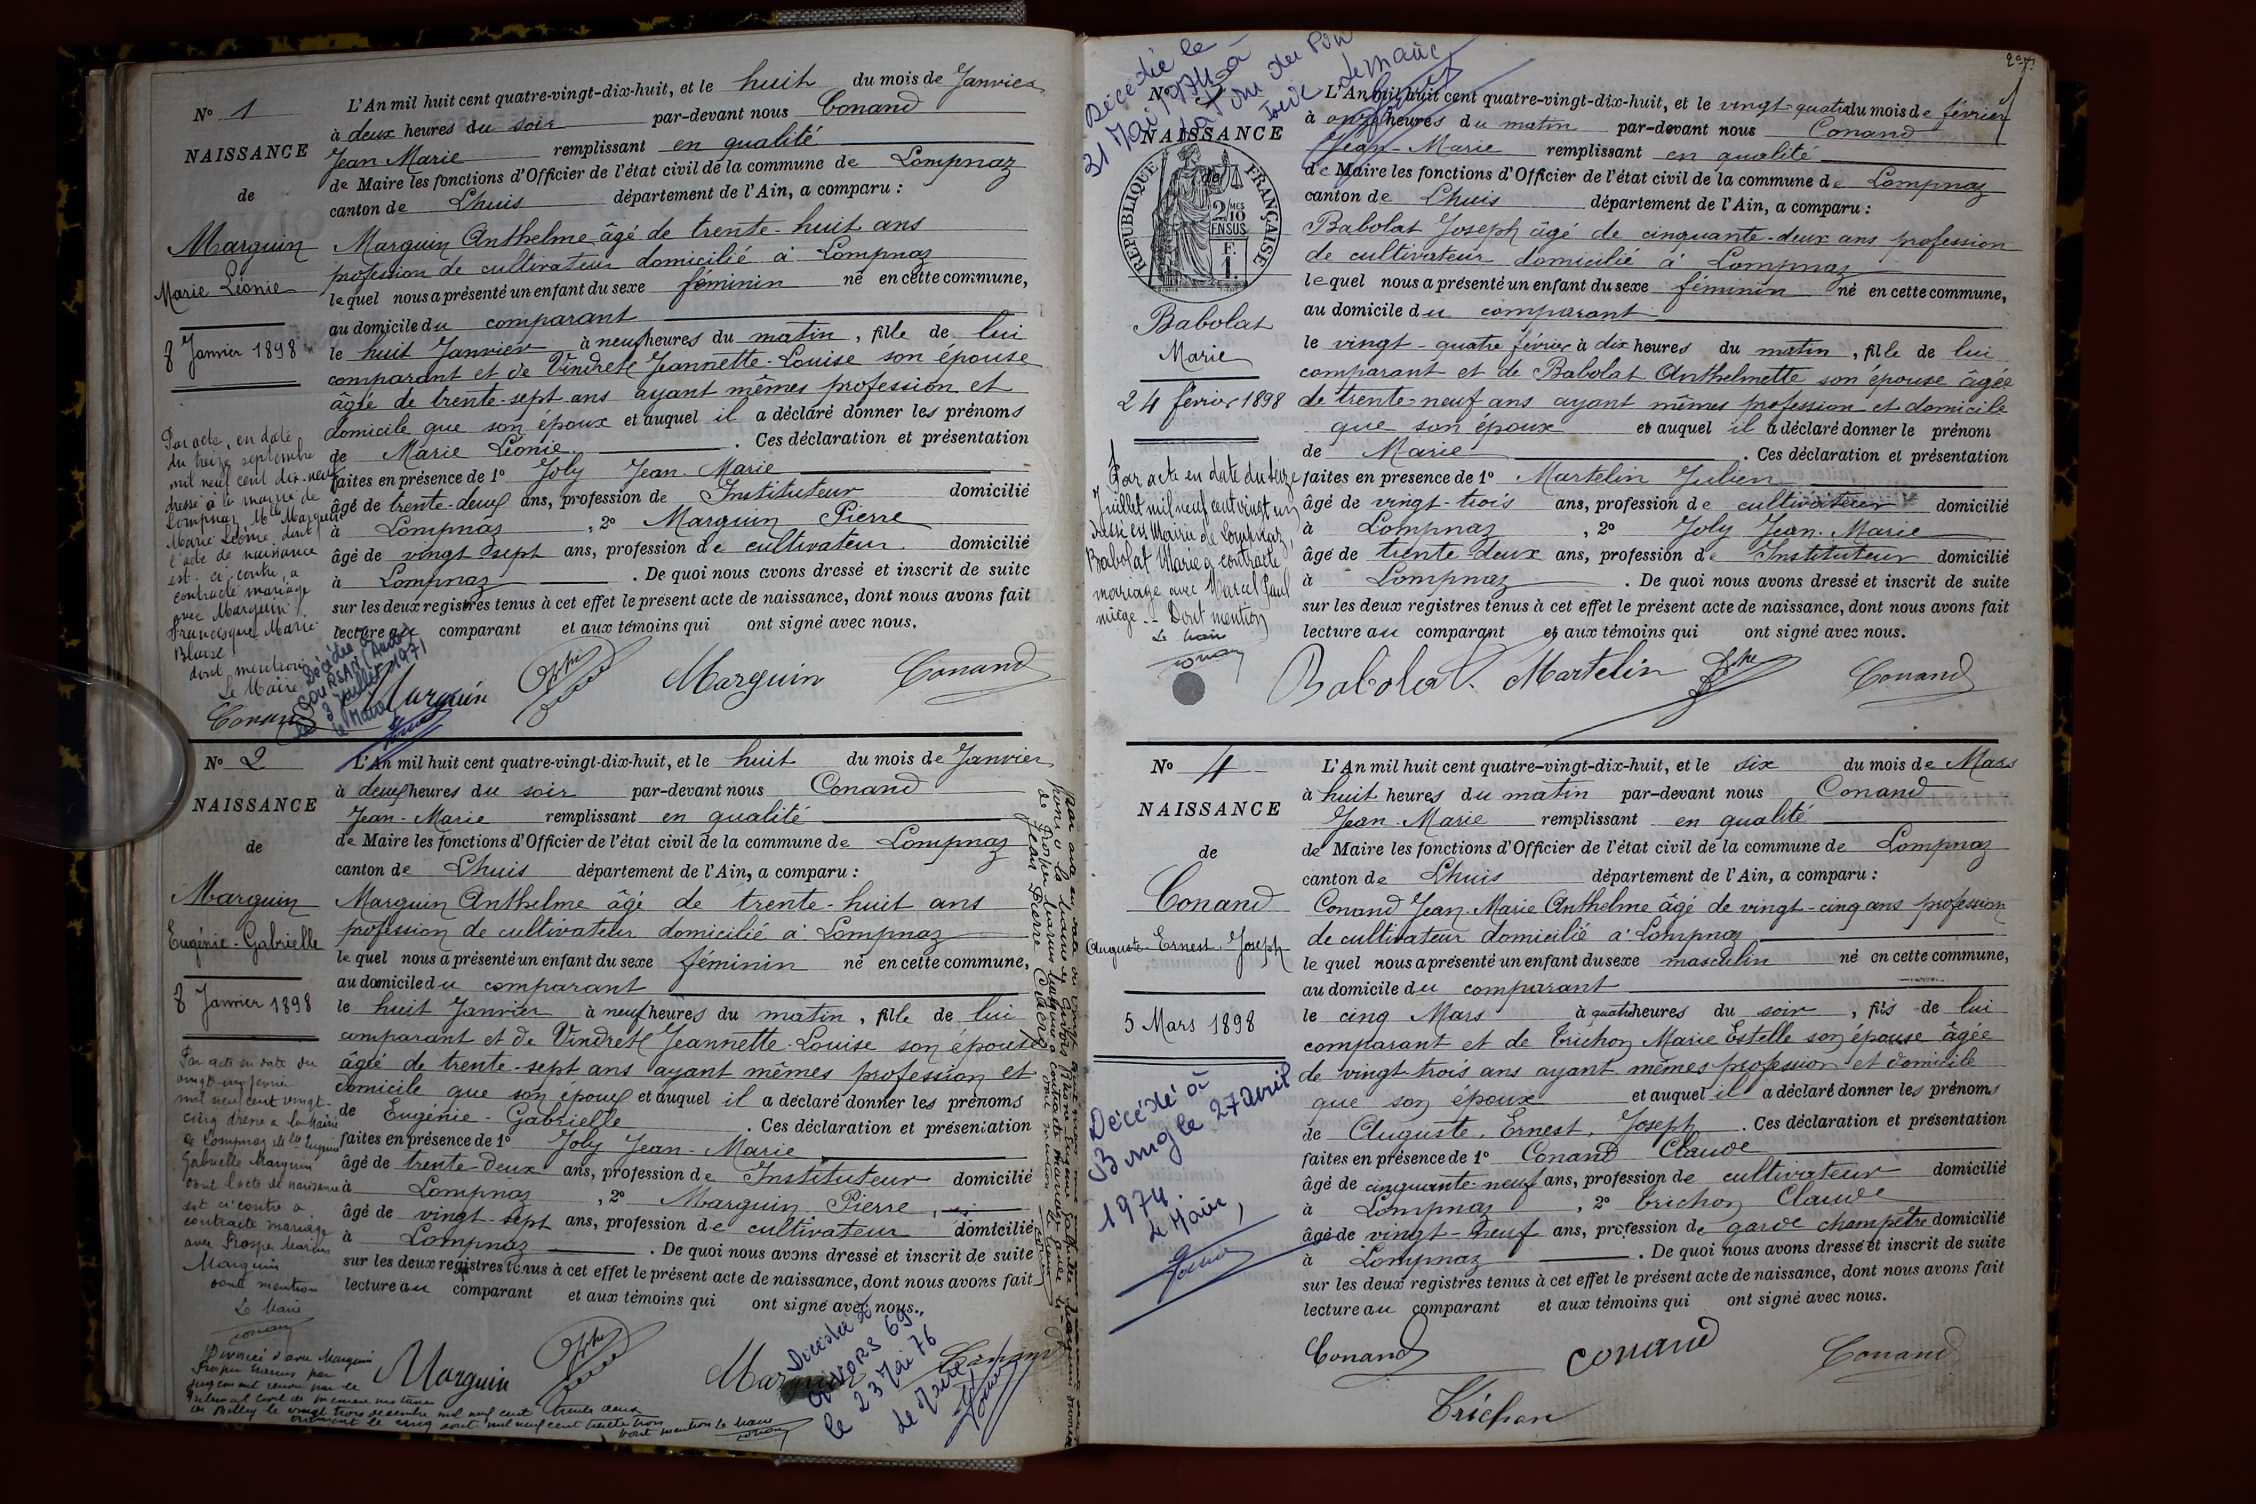 No 1
NAISSANCE
de
Marguin
Marie Léonie
8 Janvier 1898
L'An mil huit cent quatre-vingt-dix-huit, et le huit du mois de Janvier
à deux heures du soir par-devant nous Conand
Jean Marie remplissant en qualité
de Maire les fonctions d'Officier de l'état civil de la commune de Lompnaz
canton de Lhuis département de l'Ain, a comparu :
Marguin Anthelme âgé de trente-huit ans
profession de cultivateur domicilié à Lompnaz
lequel nous a présenté un enfant du sexe féminin né en cette commune,
au domicile du comparant
le huit Janvier à neuf heures du matin, fille de lui
comparant et de Vindret Jeannette-Louise son épouse
âgée de trente-sept ans ayant mêmes profession et
domicile que son époux et auquel il a déclaré donner les prénoms
de Marie Léonie. Ces déclaration et présentation
faites en présence de 1o Joly Jean-Marie
âgé de trente-deux ans, profession de Instituteur domicilié
à Lompnaz, 2o Marguin Pierre
âgé de vingt sept ans, profession de cultivateur domicilié
à Lompnaz. De quoi nous avons dressé et inscrit de suite
sur les deux registres tenus à cet effet le présent acte de naissance, dont nous avons fait
lecture au comparant et aux témoins qui ont signé avec nous.
Par acte, en date
du treize septembre
mil neuf cent dix-neuf
dressé à la mairie de
Lompnaz, Mlle Marguin
Marie Léonie dont
l'acte de naissance
est ci-contre, a
contracté mariage
avec Marguin
Francisque Marie
Blaise
dont mention
Le Maire
Conand
Décédée à
COURSAN (Aude)
le 3 Juillet 1971
le Maire
Marguin Marguin Conand
No 2
NAISSANCE
de
Marguin
Eugénie-Gabrielle
8 Janvier 1898
L'An mil huit cent quatre-vingt-dix-huit, et le huit du mois de Janvier
à deux heures du soir par-devant nous Conand
Jean-Marie remplissant en qualité
de Maire les fonctions d'Officier de l'état civil de la commune de Lompnaz
canton de Lhuis département de l'Ain, a comparu :
Marguin Anthelme âgé de trente-huit ans
profession de cultivateur domicilié à Lompnaz
lequel nous a présenté un enfant du sexe féminin né en cette commune,
au domicile du comparant
le huit Janvier à neuf heures du matin, fille de lui
comparant et de Vindret Jeannette-Louise son épouse
âgé de trente-sept ans ayant mêmes profession et
domicile que son époux et auquel il a déclaré donner les prénoms
de Eugénie-Gabrielle. Ces déclaration et présentation
faites en présence de 1o Joly Jean-Marie
âgé de trente-deux ans, profession de Instituteur domicilié
à Lompnaz, 2o Marguin Pierre,
âgé de vingt-sept ans, profession de cultivateur domicilié
à Lompnaz. De quoi nous avons dressé et inscrit de suite
sur les deux registres tenus à cet effet le présent acte de naissance, dont nous avons fait
lecture au comparant et aux témoins qui ont signé avec nous.
Par acte en date du
vingt-cinq février
mil neuf cent vingt-
cinq dressé à la Mairie
de Lompnaz Mlle Eugénie
Gabrielle Marguin
dont l'acte de naissance
est ci contre a
contracté mariage
avec Prosper Marius
Marguin
dont mention
Le Maire
Conand
Divorcée d'avec Marguin
Prosper Marius par
jugement rendu par le
Tribunal Civil de première instance
de Belley le vingt trois décembre mil neuf cent trente deux
mil neuf cent trente trois dont mention le Maire
Conand
Marguin Marguin Conand
Décédée à
GIVORS 69
le 23 Mai 76
le Maire
de Prosper Marius Marguin a contracté mariage avec
Jean Pierre dont mention
No
NAISSANCE
de
RÉPUBLIQUE FRANÇAISE
2/10
EN SUS
F.
1.
Babolat
Marie
24 février 1898
Décédée le
31 Mai 1974 à
La Tour du Pin
Isère le Maire
L'An mil huit cent quatre-vingt-dix-huit, et le vingt-quatre du mois de février
à onze heures du matin par-devant nous Conand
Jean-Marie remplissant en qualité
de Maire les fonctions d'Officier de l'état civil de la commune de Lompnaz
canton de Lhuis département de l'Ain, a comparu :
Babolat Joseph âgé de cinquante-deux ans profession
de cultivateur domicilié à Lompnaz
lequel nous a présenté un enfant du sexe féminin né en cette commune,
au domicile du comparant
le vingt-quatre février à dix heures du matin, fille de lui
comparant et de Babolat Anthelmette son épouse âgée
de trente-neuf ans ayant mêmes profession et domicile
que son époux et auquel il a déclaré donner le prénom
de Marie. Ces déclaration et présentation
faites en présence de 1o Martelin Julien
âgé de vingt-trois ans, profession de cultivateur domicilié
à Lompnaz, 2o Joly Jean-Marie
âgé de trente deux ans, profession de Instituteur domicilié
à Lompnaz. De quoi nous avons dressé et inscrit de suite
sur les deux registres tenus à cet effet le présent acte de naissance, dont nous avons fait
lecture au comparant et aux témoins qui ont signé avec nous.
Par acte en date du seize
Juillet mil neuf cent vingt un
dressé en Mairie de Lompnaz,
Babolat Marie a contracté
mariage avec Marcel Paul
Miège. - Dont mention
Le Maire
Conand
Babolat Martelin Conand
No 4
NAISSANCE
de
Conand
Auguste-Ernest-Joseph
5 Mars 1898
L'An mil huit cent quatre-vingt-dix-huit, et le six du mois de Mars
à huit heures du matin par-devant nous Conand
Jean-Marie remplissant en qualité
de Maire les fonctions d'Officier de l'état civil de la commune de Lompnaz
canton de Lhuis département de l'Ain, a comparu :
Conand Jean-Marie Anthelme âgé de vingt-cinq ans profession
de cultivateur domicilié à Lompnaz
lequel nous a présenté un enfant du sexe masculin né en cette commune,
au domicile du comparant
le cinq Mars à quatre heures du soir, fils de lui
comparant et de Trichon Marie Estelle son épouse âgée
de vingt-trois ans ayant mêmes profession et domicile
que son époux et auquel il a déclaré donner les prénoms
de Auguste, Ernest, Joseph. Ces déclaration et présentation
faites en présence de 1o Conand Claude
âgé de cinquante-neuf ans, profession de cultivateur domicilié
à Lompnaz, 2o Trichon Claude
âgé de vingt-neuf ans, profession de garde champêtre domicilié
à Lompnaz. De quoi nous avons dressé et inscrit de suite
sur les deux registres tenus à cet effet le présent acte de naissance, dont nous avons fait
lecture au comparant et aux témoins qui ont signé avec nous.
Décédé à
Bourg le 27 avril
1974.
Le Maire,
Conand conand Conand
Trichon